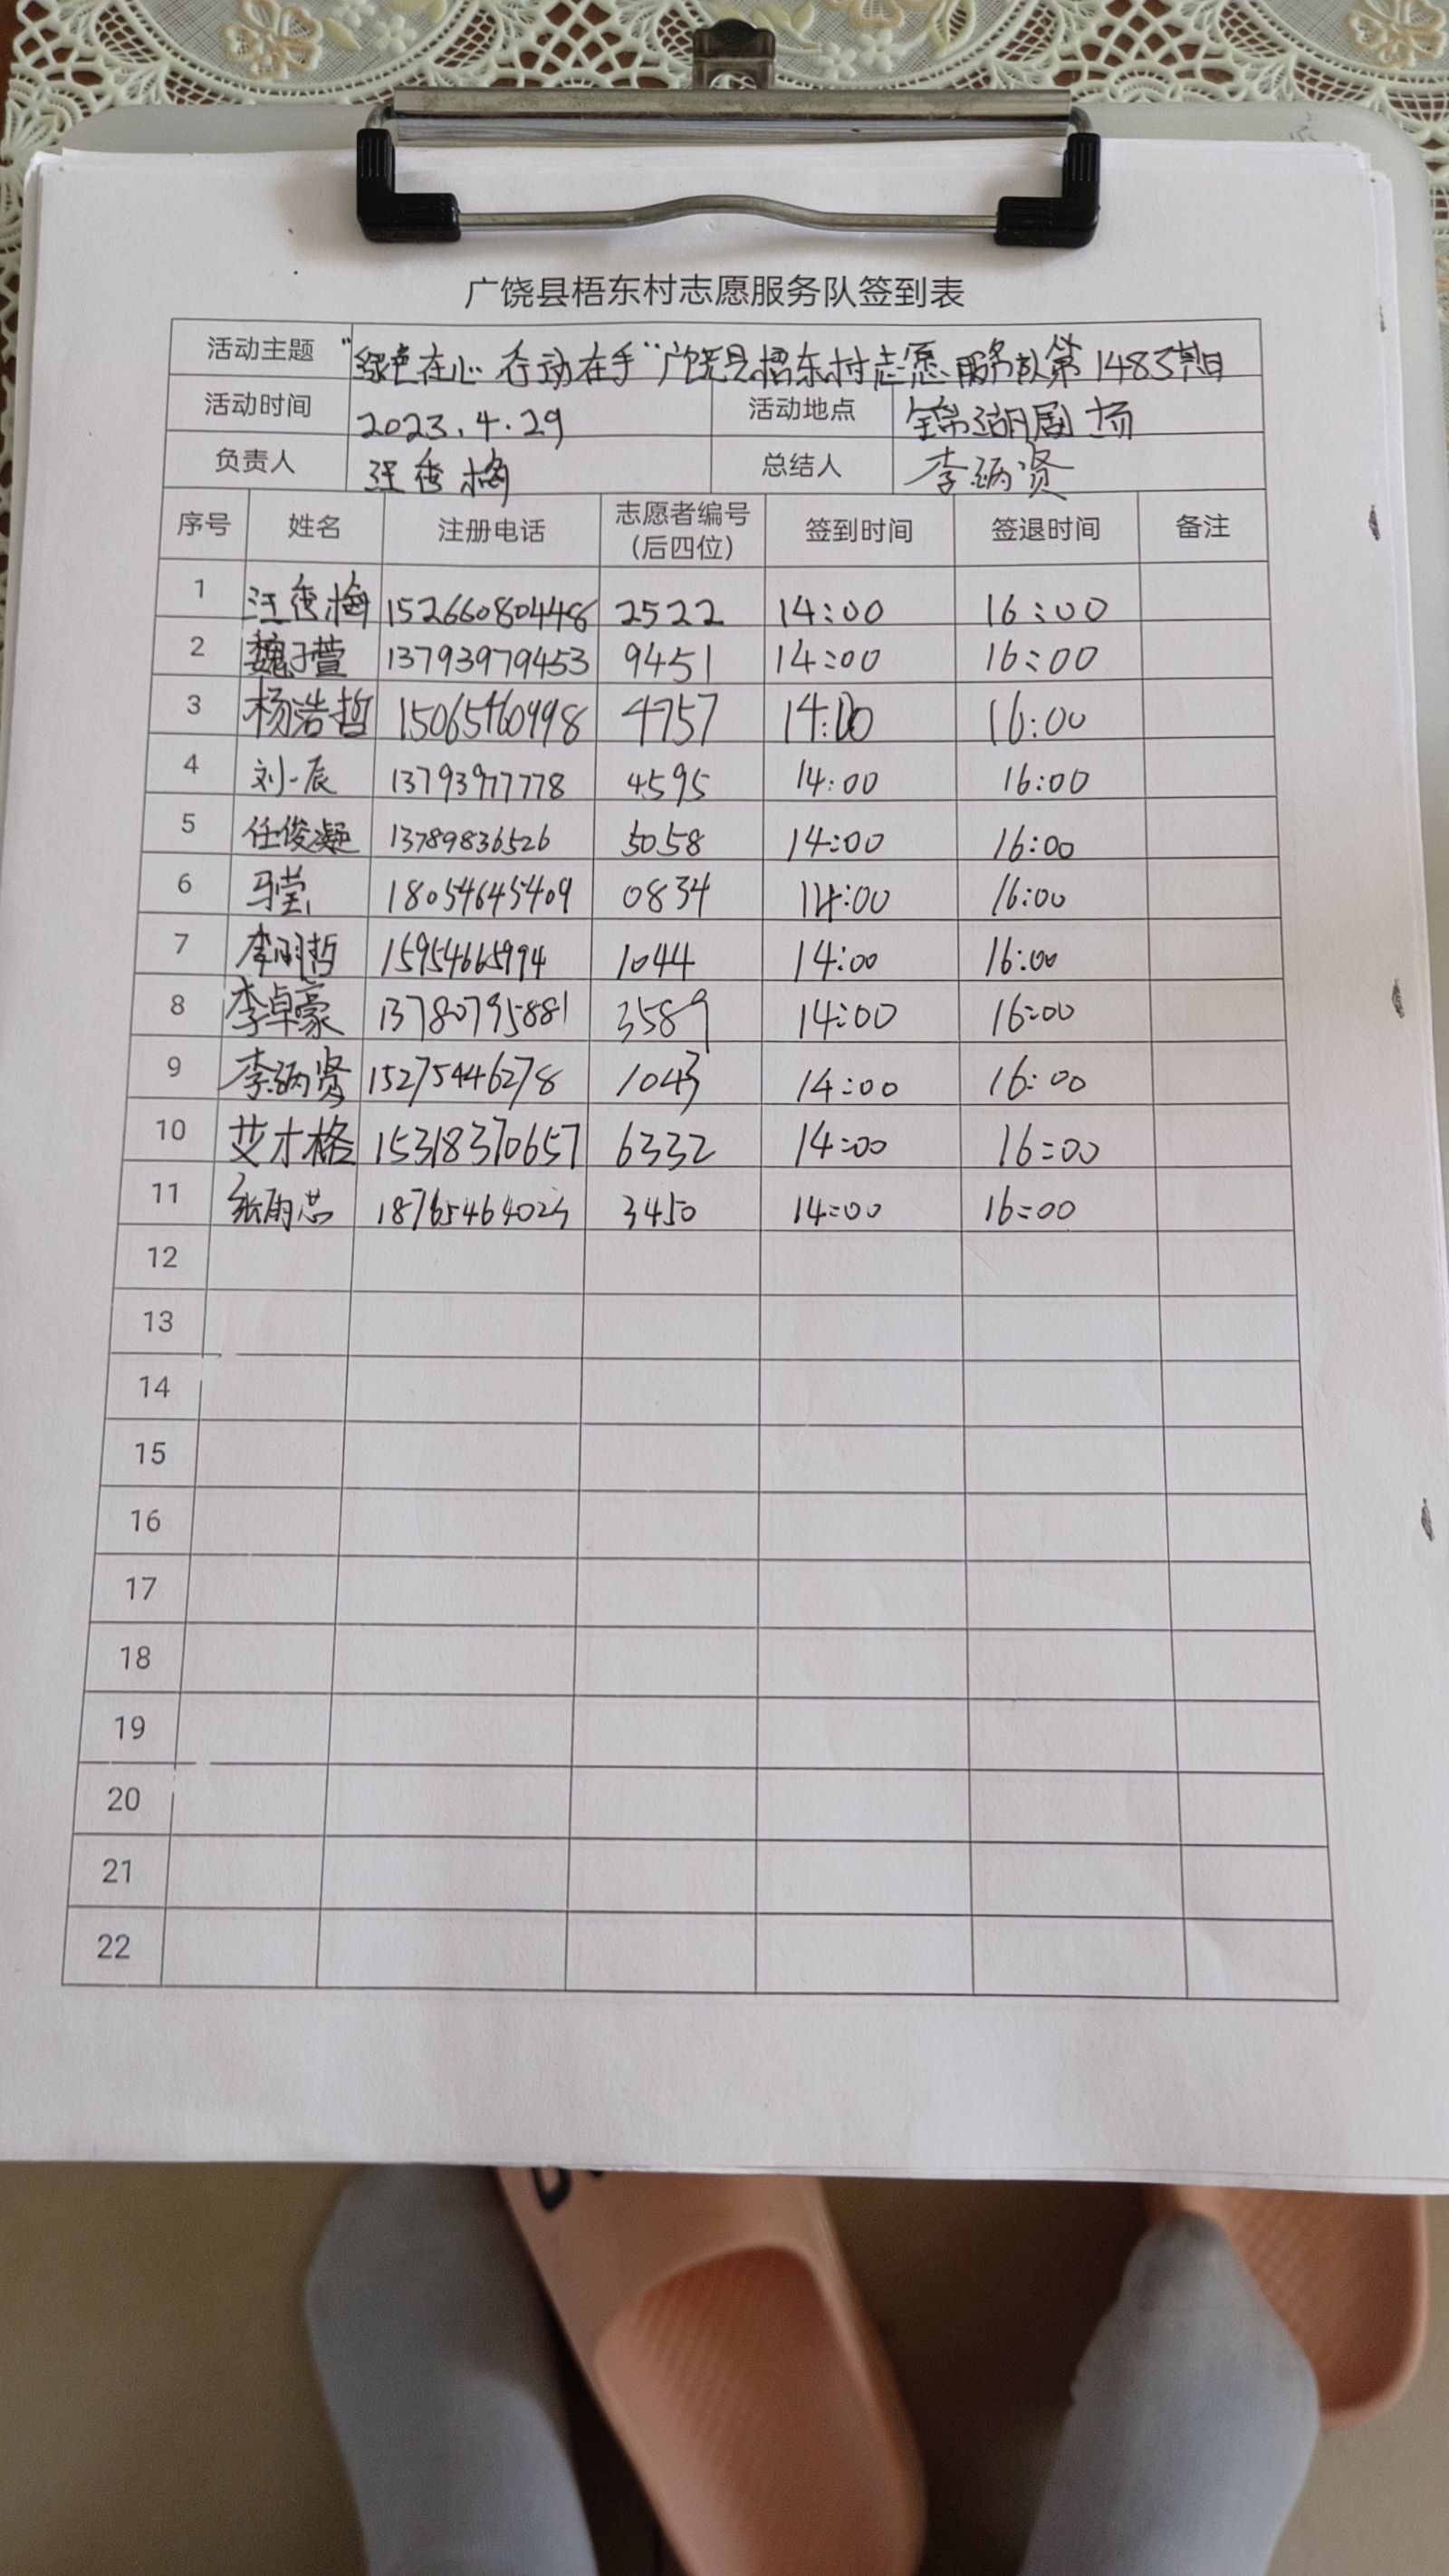 广饶县梧东村志愿服务队签到表
活动主题 "绿色在心 行动在手"广饶县梧东村志愿服务队第1483期
活动时间 2023.4.29 活动地点 锦湖剧场
负责人 汪秀梅 总结人 李炳贤
序号 姓名 注册电话 志愿者编号（后四位） 签到时间 签退时间 备注
1 汪秀梅 15266080448 2522 14:00 16:00
2 魏子萱 13793979453 9451 14:00 16:00
3 杨浩哲 15065460998 4757 14:00 16:00
4 刘一辰 13793977778 4595 14:00 16:00
5 任俊凝 13789836526 5058 14:00 16:00
6 马莹 18054645409 0834 14:00 16:00
7 李明哲 15954665994 1044 14:00 16:00
8 李卓豪 13780795881 3589 14:00 16:00
9 李炳贤 15275446278 1043 14:00 16:00
10 艾才格 15318370657 6332 14:00 16:00
11 张雨芯 3450 14:00 16:00
12
13
14
15
16
17
18
19
20
21
22